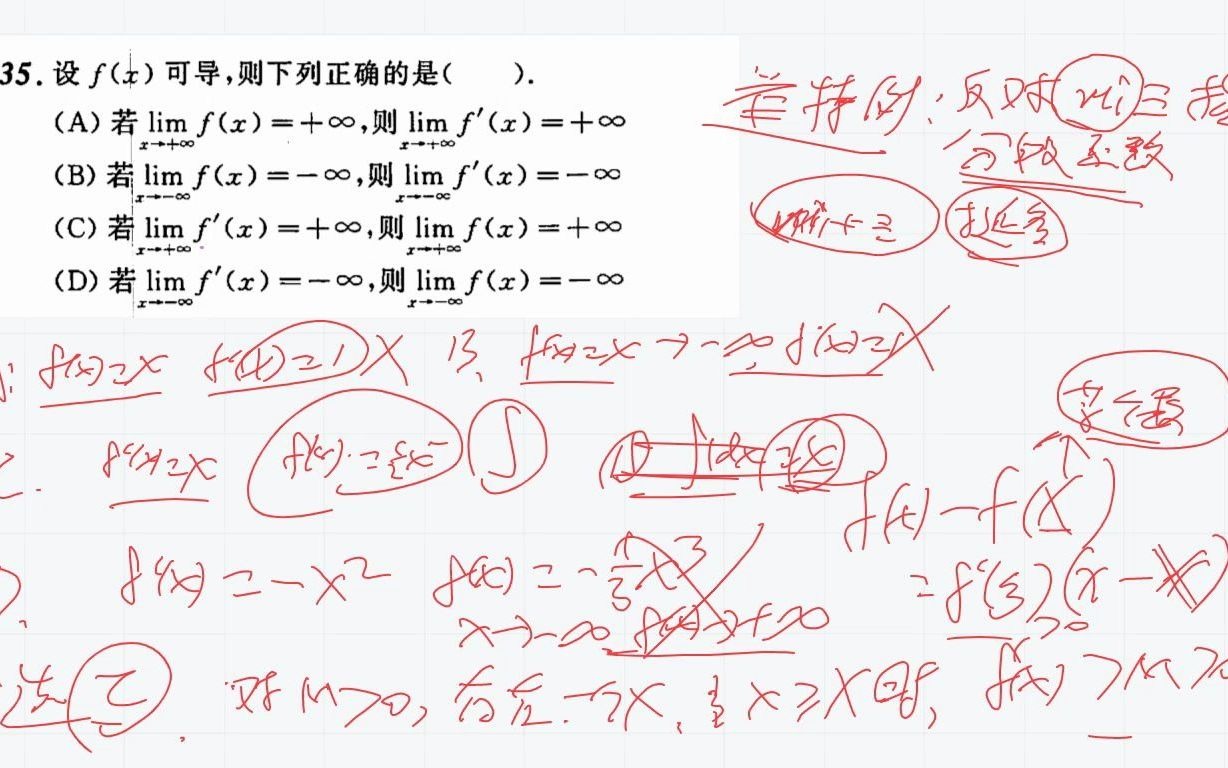 35. 设 f(x) 可导,则下列正确的是(    ).
(A) 若 lim_{x→+∞} f(x)=+∞,则 lim_{x→+∞} f′(x)=+∞
(B) 若 lim_{x→-∞} f(x)=-∞,则 lim_{x→-∞} f′(x)=-∞
(C) 若 lim_{x→+∞} f′(x)=+∞,则 lim_{x→+∞} f(x)=+∞
(D) 若 lim_{x→-∞} f′(x)=-∞,则 lim_{x→-∞} f(x)=-∞
举特例: 反对 三
分段函数
f(x)=x f′(x)=1 X B. f(x)=x→-∞ f′(x)=1 X
f′(x)=x f(x)=½x² ∫
f(x)-f(X)
f′(x)=-x² f(x)=-1/3x³ =f′(ξ)(x-X)
x→-∞ f(x)→+∞ >0
选 C 对 M>0, 存在一个X, 当 x≥X时, f′(x)>M>